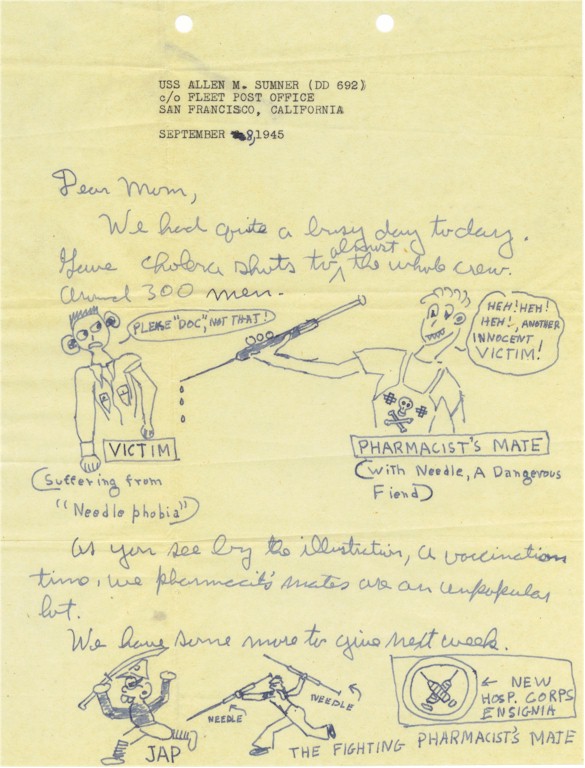 USS ALLEN M. SUMNER (DD 692)
c/o FLEET POST OFFICE
SAN FRANCISCO, CALIFORNIA
SEPTEMBER 8, 1945
Dear Mom,
We had quite a busy day today.
Gave cholera shots to almost the whole crew.
Around 300 men.
PLEASE "DOC", NOT THAT!
HEH! HEH!
HEH!, ANOTHER
INNOCENT
VICTIM!
VICTIM
(Suffering from
"Needle phobia")
PHARMACIST'S MATE
(With Needle, A Dangerous
Fiend)
As you see by the illustration, a vaccination
time, we pharmacist's mates are an unpopular
lot.
We have some more to give next week.
JAP
NEEDLE
NEEDLE
THE FIGHTING PHARMACIST'S MATE
← NEW
HOSP. CORPS
ENSIGNIA